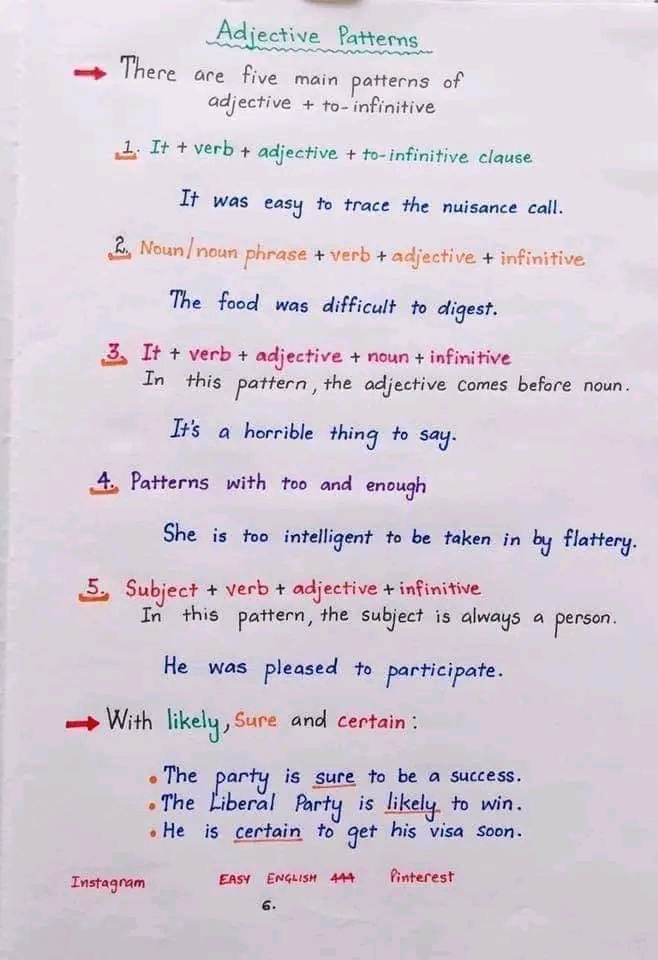 Adjective Patterns
There are five main patterns of
adjective + to-infinitive
1. It + verb + adjective + to-infinitive clause
It was easy to trace the nuisance call.
2. Noun/noun phrase + verb + adjective + infinitive
The food was difficult to digest.
3. It + verb + adjective + noun + infinitive
In this pattern, the adjective comes before noun.
It's a horrible thing to say.
4. Patterns with too and enough
She is too intelligent to be taken in by flattery.
5. Subject + verb + adjective + infinitive
In this pattern, the subject is always a person.
He was pleased to participate.
With likely, Sure and certain :
• The party is sure to be a success.
• The Liberal Party is likely to win.
• He is certain to get his visa soon.
Instagram EASY ENGLISH 444 Pinterest
6.